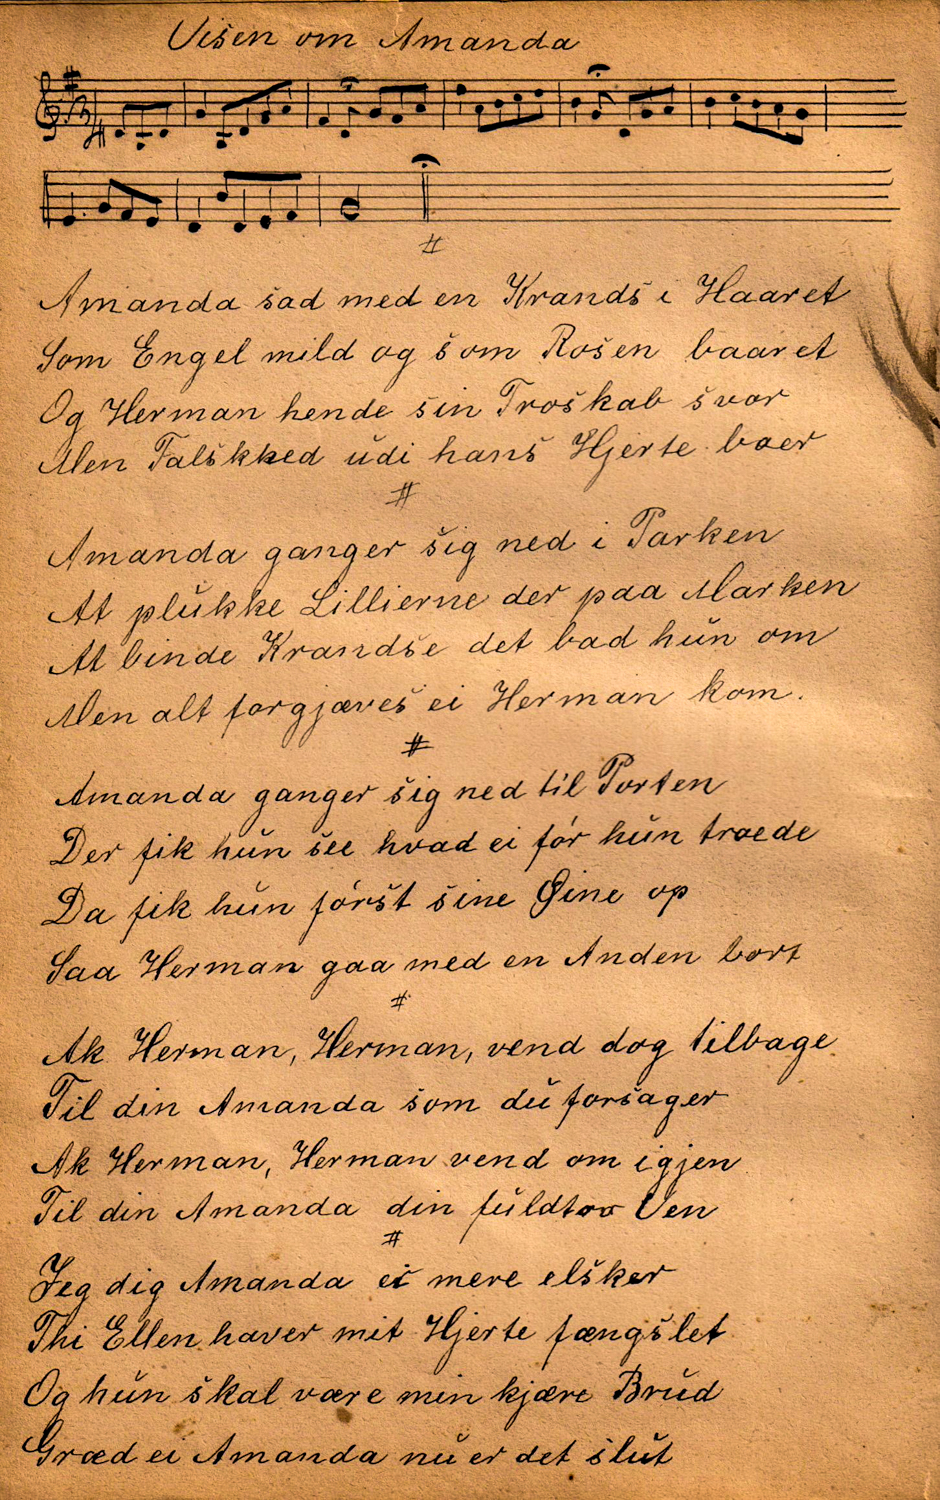 Visen om Amanda
Amanda sad med en Krands i Haaret
Som Engel mild og som Rosen baaret
Og Herman hende sin Troskab svor
Men Falskhed udi hans Hjerte boer
Amanda ganger sig ned i Parken
At plukke Lillierne der paa Marken
At binde Krandse det bad hun om
Men alt forgjæves ei Herman kom.
Amanda ganger sig ned til Porten
Der fik hun see hvad ei før hun troede
Da fik hun først sine Øine op
Saa Herman gaa med en Anden bort
Ak Herman, Herman, vend dog tilbage
Til din Amanda som du forsager
Ak Herman, Herman vend om igjen
Til din Amanda din fuldtro Ven
Jeg dig Amanda ei mere elsker
Thi Ellen haver mit Hjerte fængslet
Og hun skal være min kjære Brud
Græd ei Amanda nu er det slut